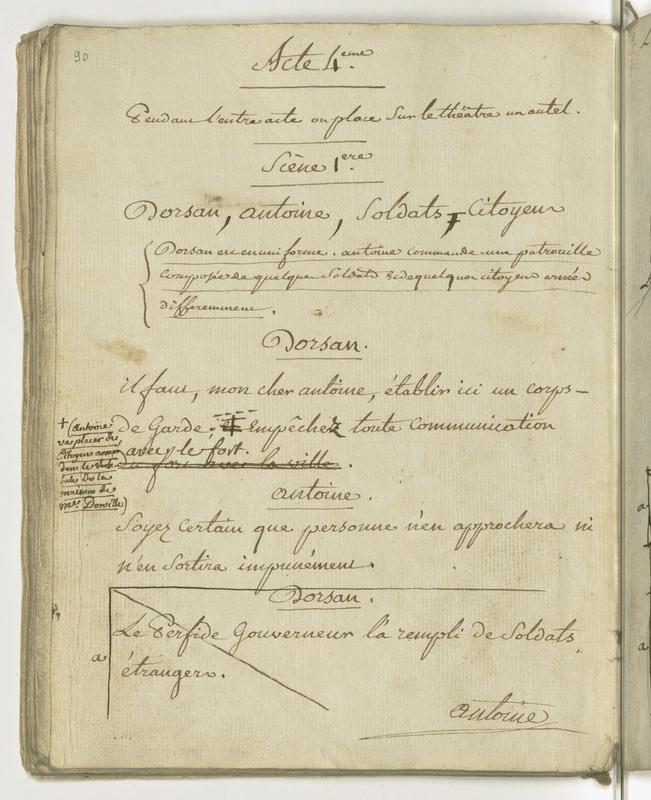 90
Acte 4.eme
Pendant l'entre acte on place Sur le théâtre un autel.
Scène 1.ere
Dorsan, antoine, Soldats, Citoyens
Dorsan est en uniforme. antoine commande une patrouille
composée de quelques Soldats & de quelques citoyens armés
differemment.
Dorsan.
il faut, mon cher antoine, établir ici un corps-
de Garde; et Empêchez toute Communication
avec le fort.
du fort avec la ville.
+ (antoine
va placer des
Citoyens armés
dans le vesti-
bule de la
maison de
Mr. Dorville)
antoine.
Soyez certain que personne n'en approchera ni
n'en Sortira impunément.
Dorsan.
a
Le Perfide Gouverneur l'a rempli de Soldats
étrangers.
antoine